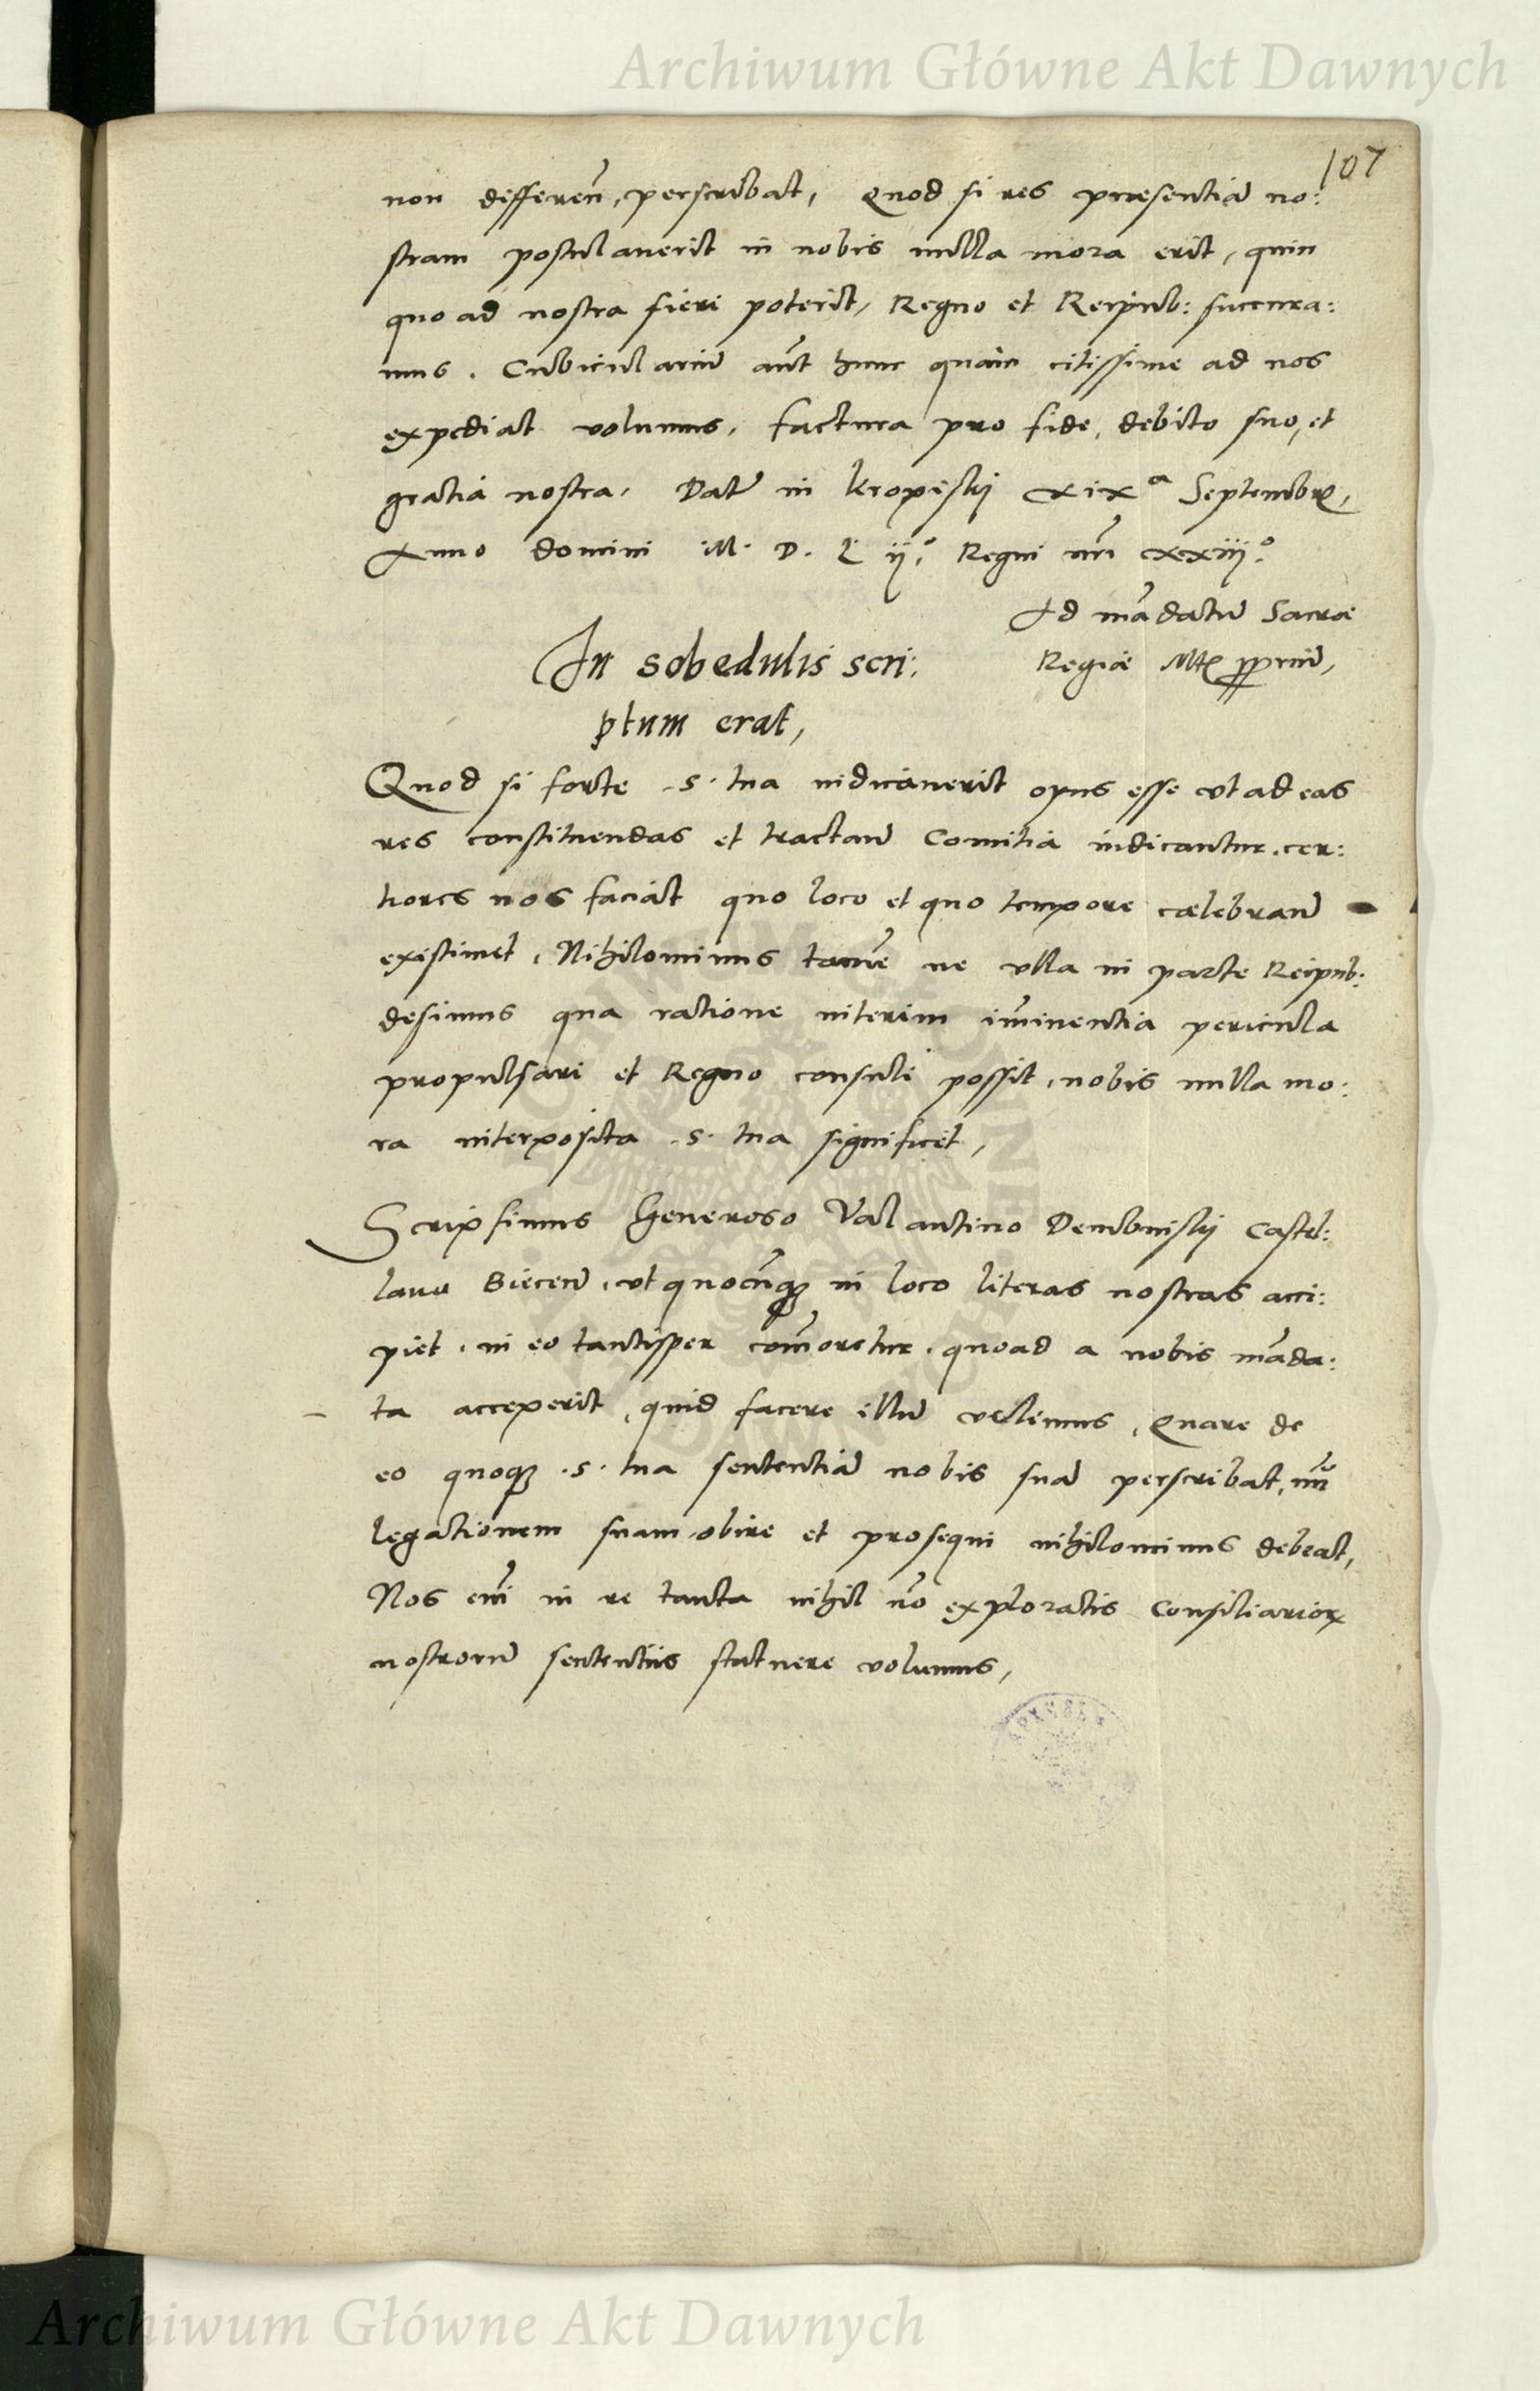 Archiwum Główne Akt Dawnych
107
non differen̄, perscribat, Quod si res præsentiā no:
stram postulauerit in nobis nulla mora erit, quin
quo ad nostra fieri poterit, Regno et Reipub: succura:
mus. Cubiculariū aūt hunc quàm citissime ad nos
expediat volumus, factura pro fide, debito suo, et
gratia nostra. Datū in kropisky xix a Septembr,
Anno domini M. D. L ij.° Regni nr̄i xxiij.°
Ad mādatū Sacræ
Regiæ Mtis ppriū,
In schedulis scri:
ptum erat,
Quod si forte .s. tua iudicauerit opus esse vt ad eas
res constituendas et tractan̄ Comitia indicantur. cer:
tiores nos faciat quo loco et quo tempore cælebran̄
existimet, Nihilominus tamē ne vlla in parte Reipub:
desimus qua ratione interim im̄inentia pericula
propulsari et Regno consuli possit, nobis nulla mo:
ra interposita .s. tua significet,
Scripsimus Generoso Valantino Dembinsky Castel:
lano Biecen̄, vt quocūq3 in loco literas nostras acci:
piet, in eo tantisper com̄oretur. quoad a nobis māda:
ta acceperit, quid facere illū vellimus, Quare de
eo quoq3 .s. tua sententiā nobis suā perscribat,
legationem suam obire et prosequi nihilominus debeat,
Nos em̄ in re tanta nihil nō exploratis Consiliarior
nostrorū sententiis statuere volumus,
Archiwum Główne Akt Dawnych